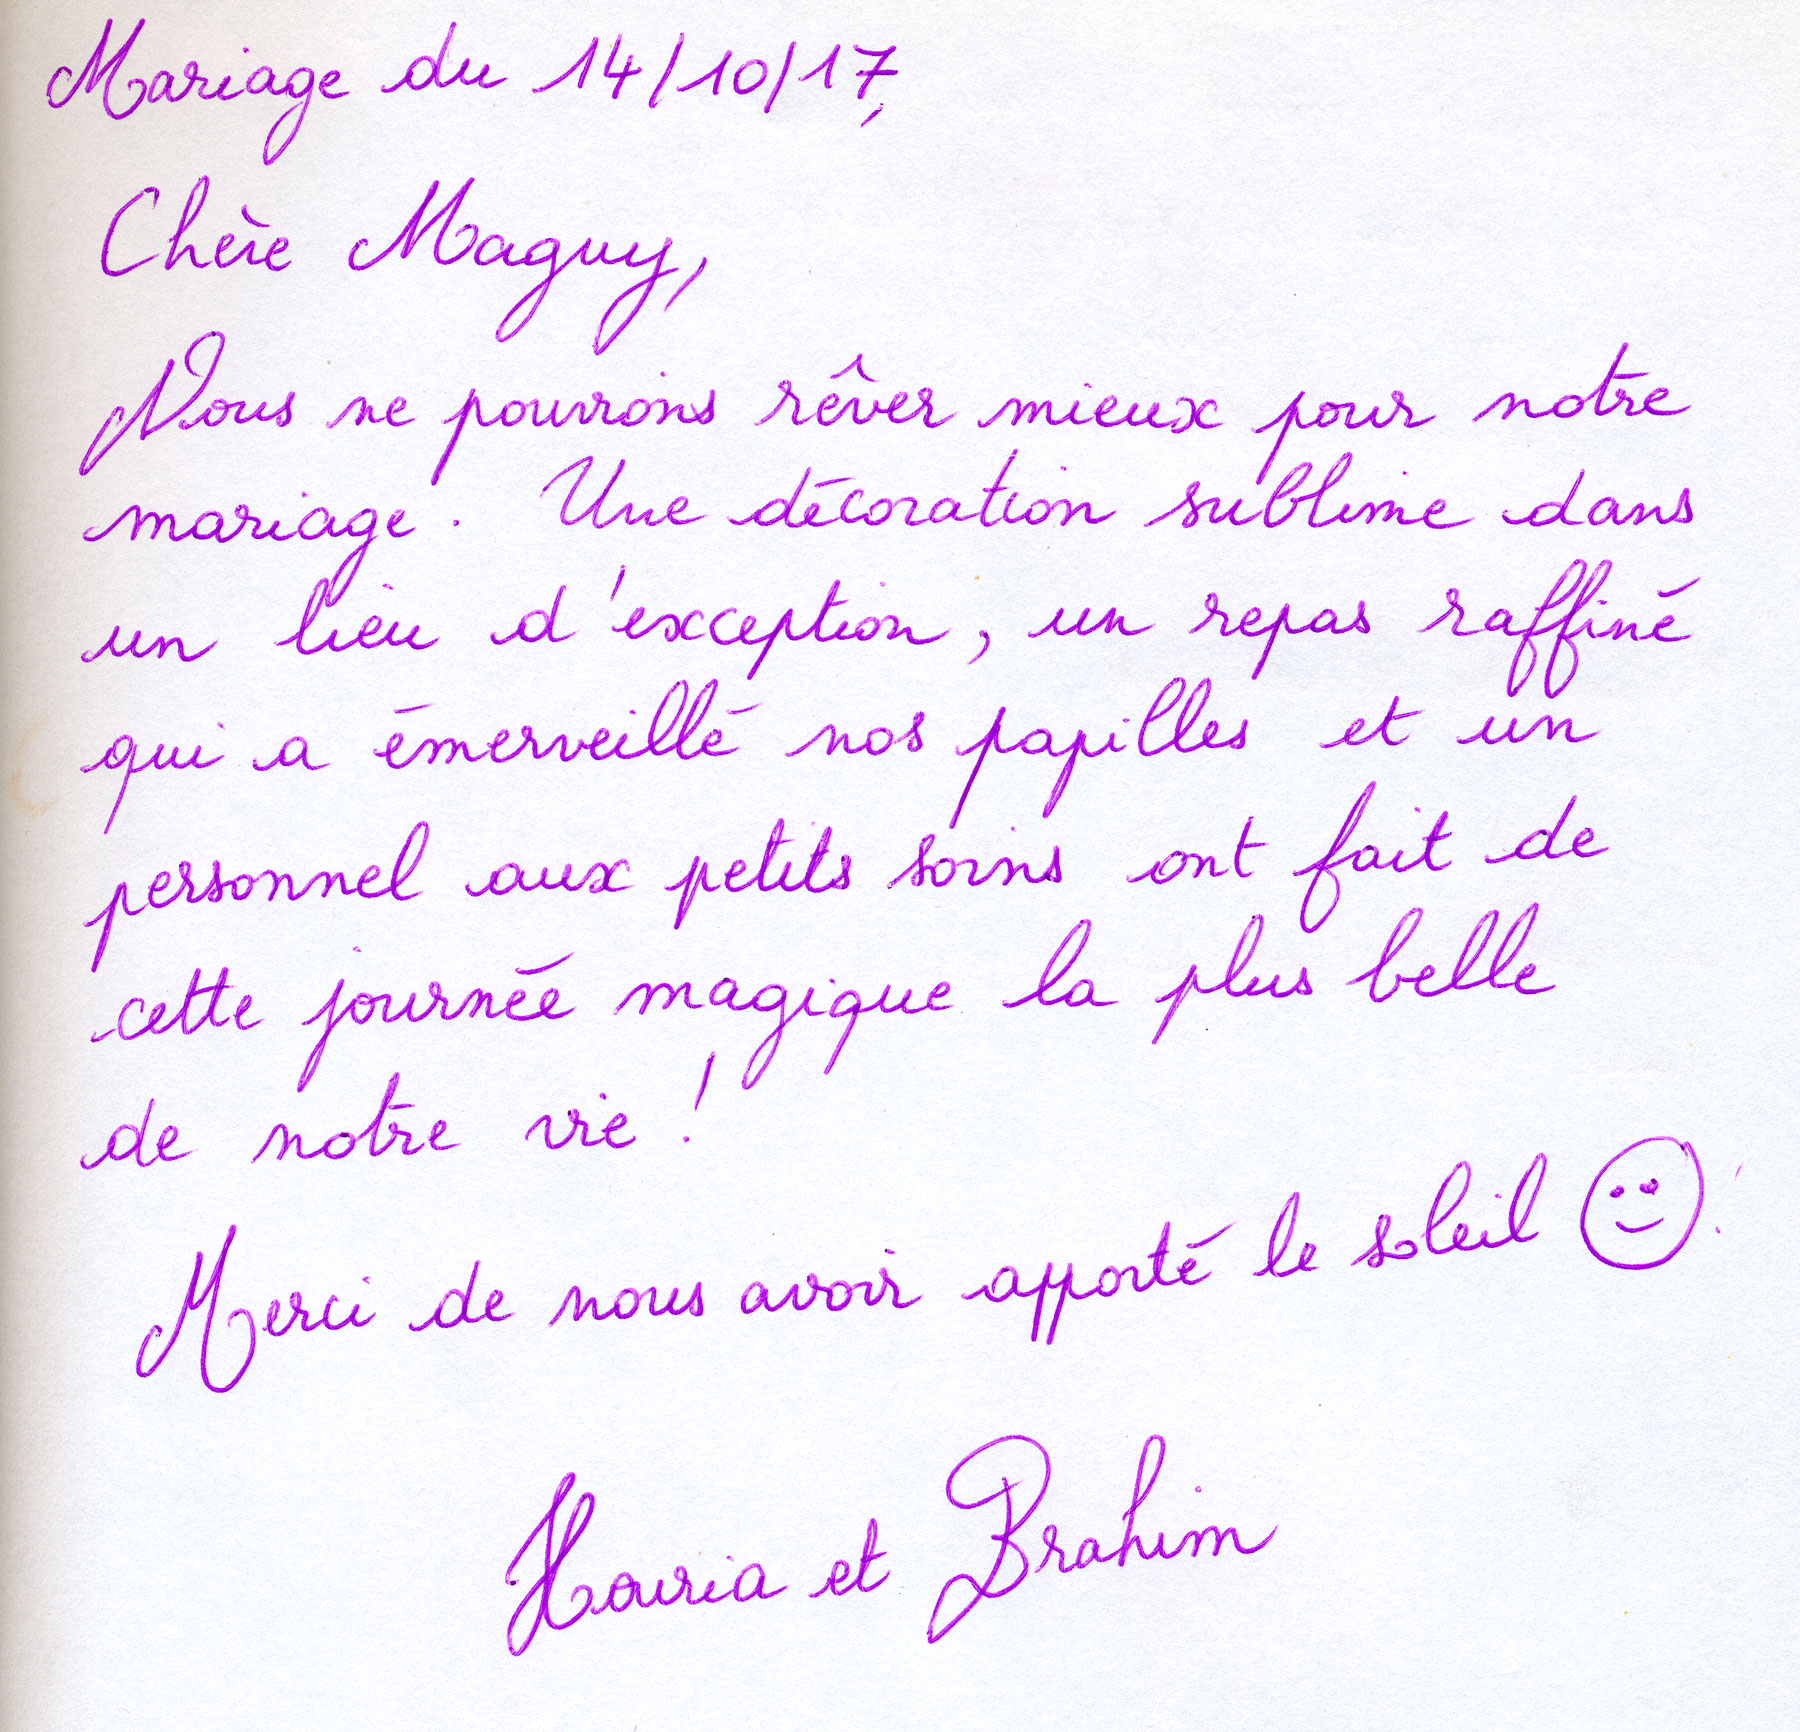 Mariage du 14/10/17,
Chère Maguy,
Nous ne pouvions rêver mieux pour notre
mariage. Une décoration sublime dans
un lieu d'exception, un repas raffiné
qui a émerveillé nos papilles et un
personnel aux petits soins ont fait de
cette journée magique la plus belle
de notre vie !
Merci de nous avoir apporté le soleil ☺!
Houria et Brahim